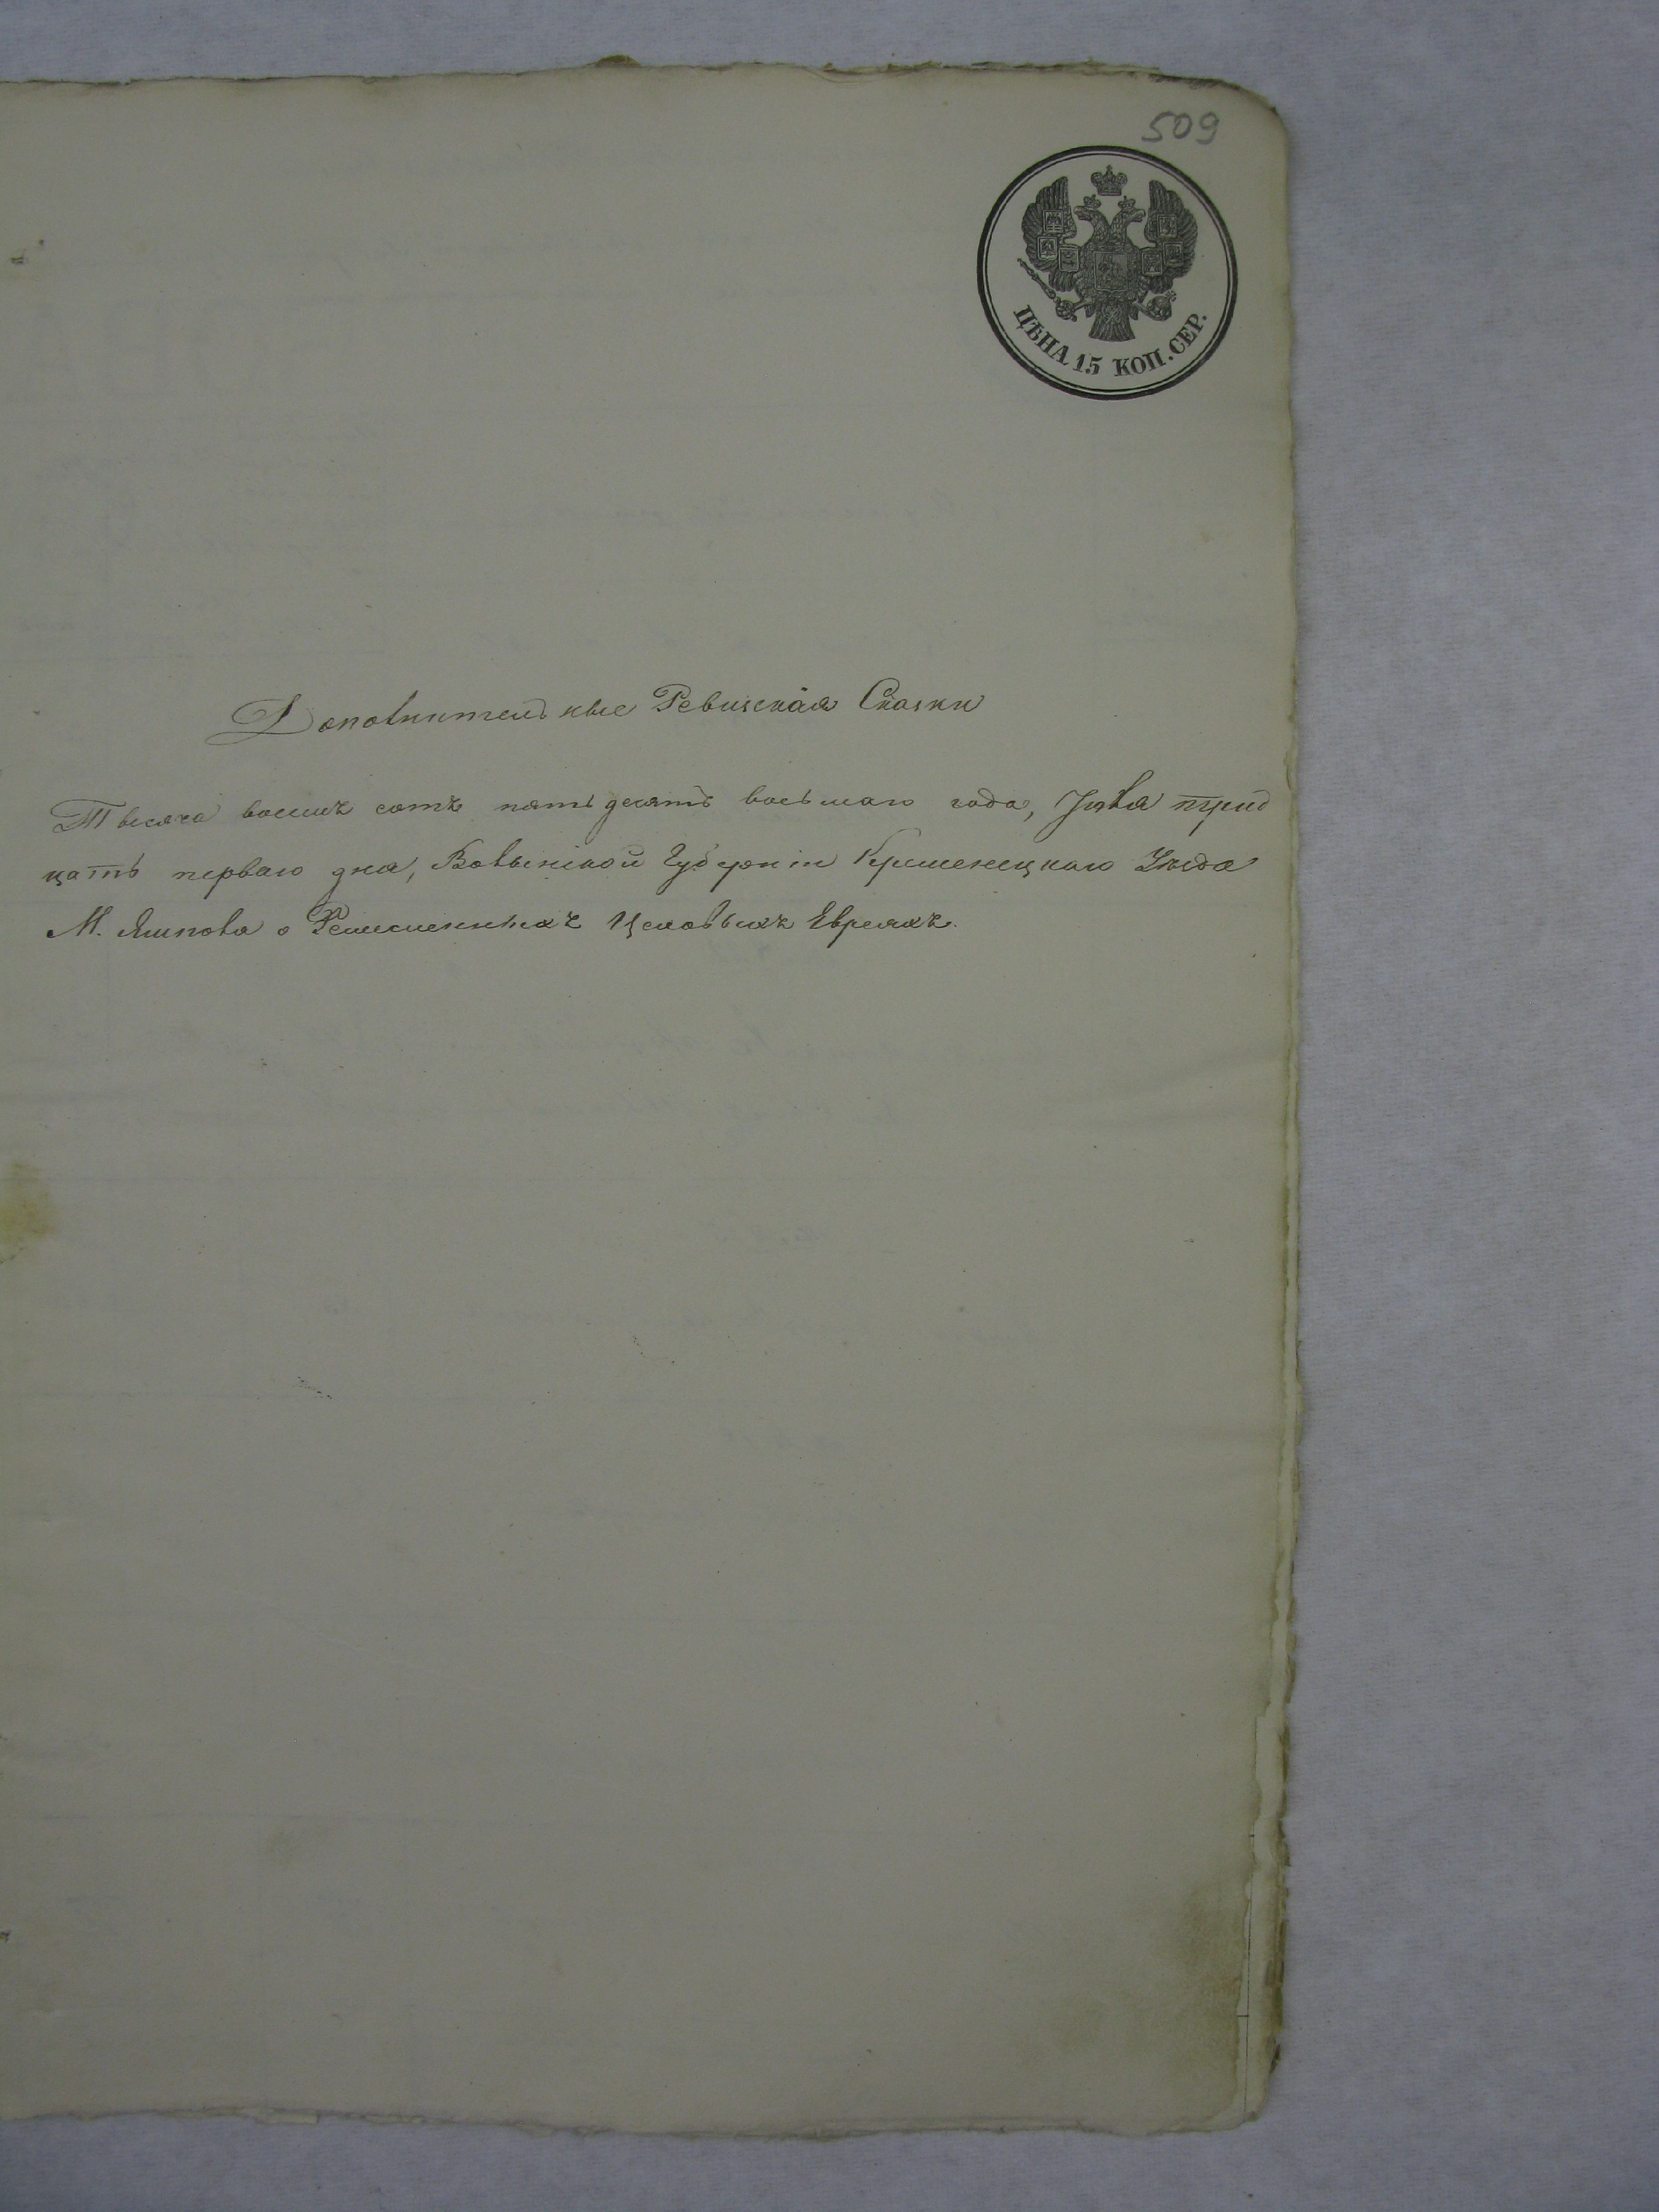 509
ЦѢНА 15 КОП. СЕР.
Дополнительные Ревизская Сказки
Тысяча восемъ сотъ пятьдесятъ восьмаго года, Іюля трид
цать перваго дня, Волынской Губерніи Кременецкаго Уѣзда
М. Ямпола о Цеховыхъ Евреяхъ.